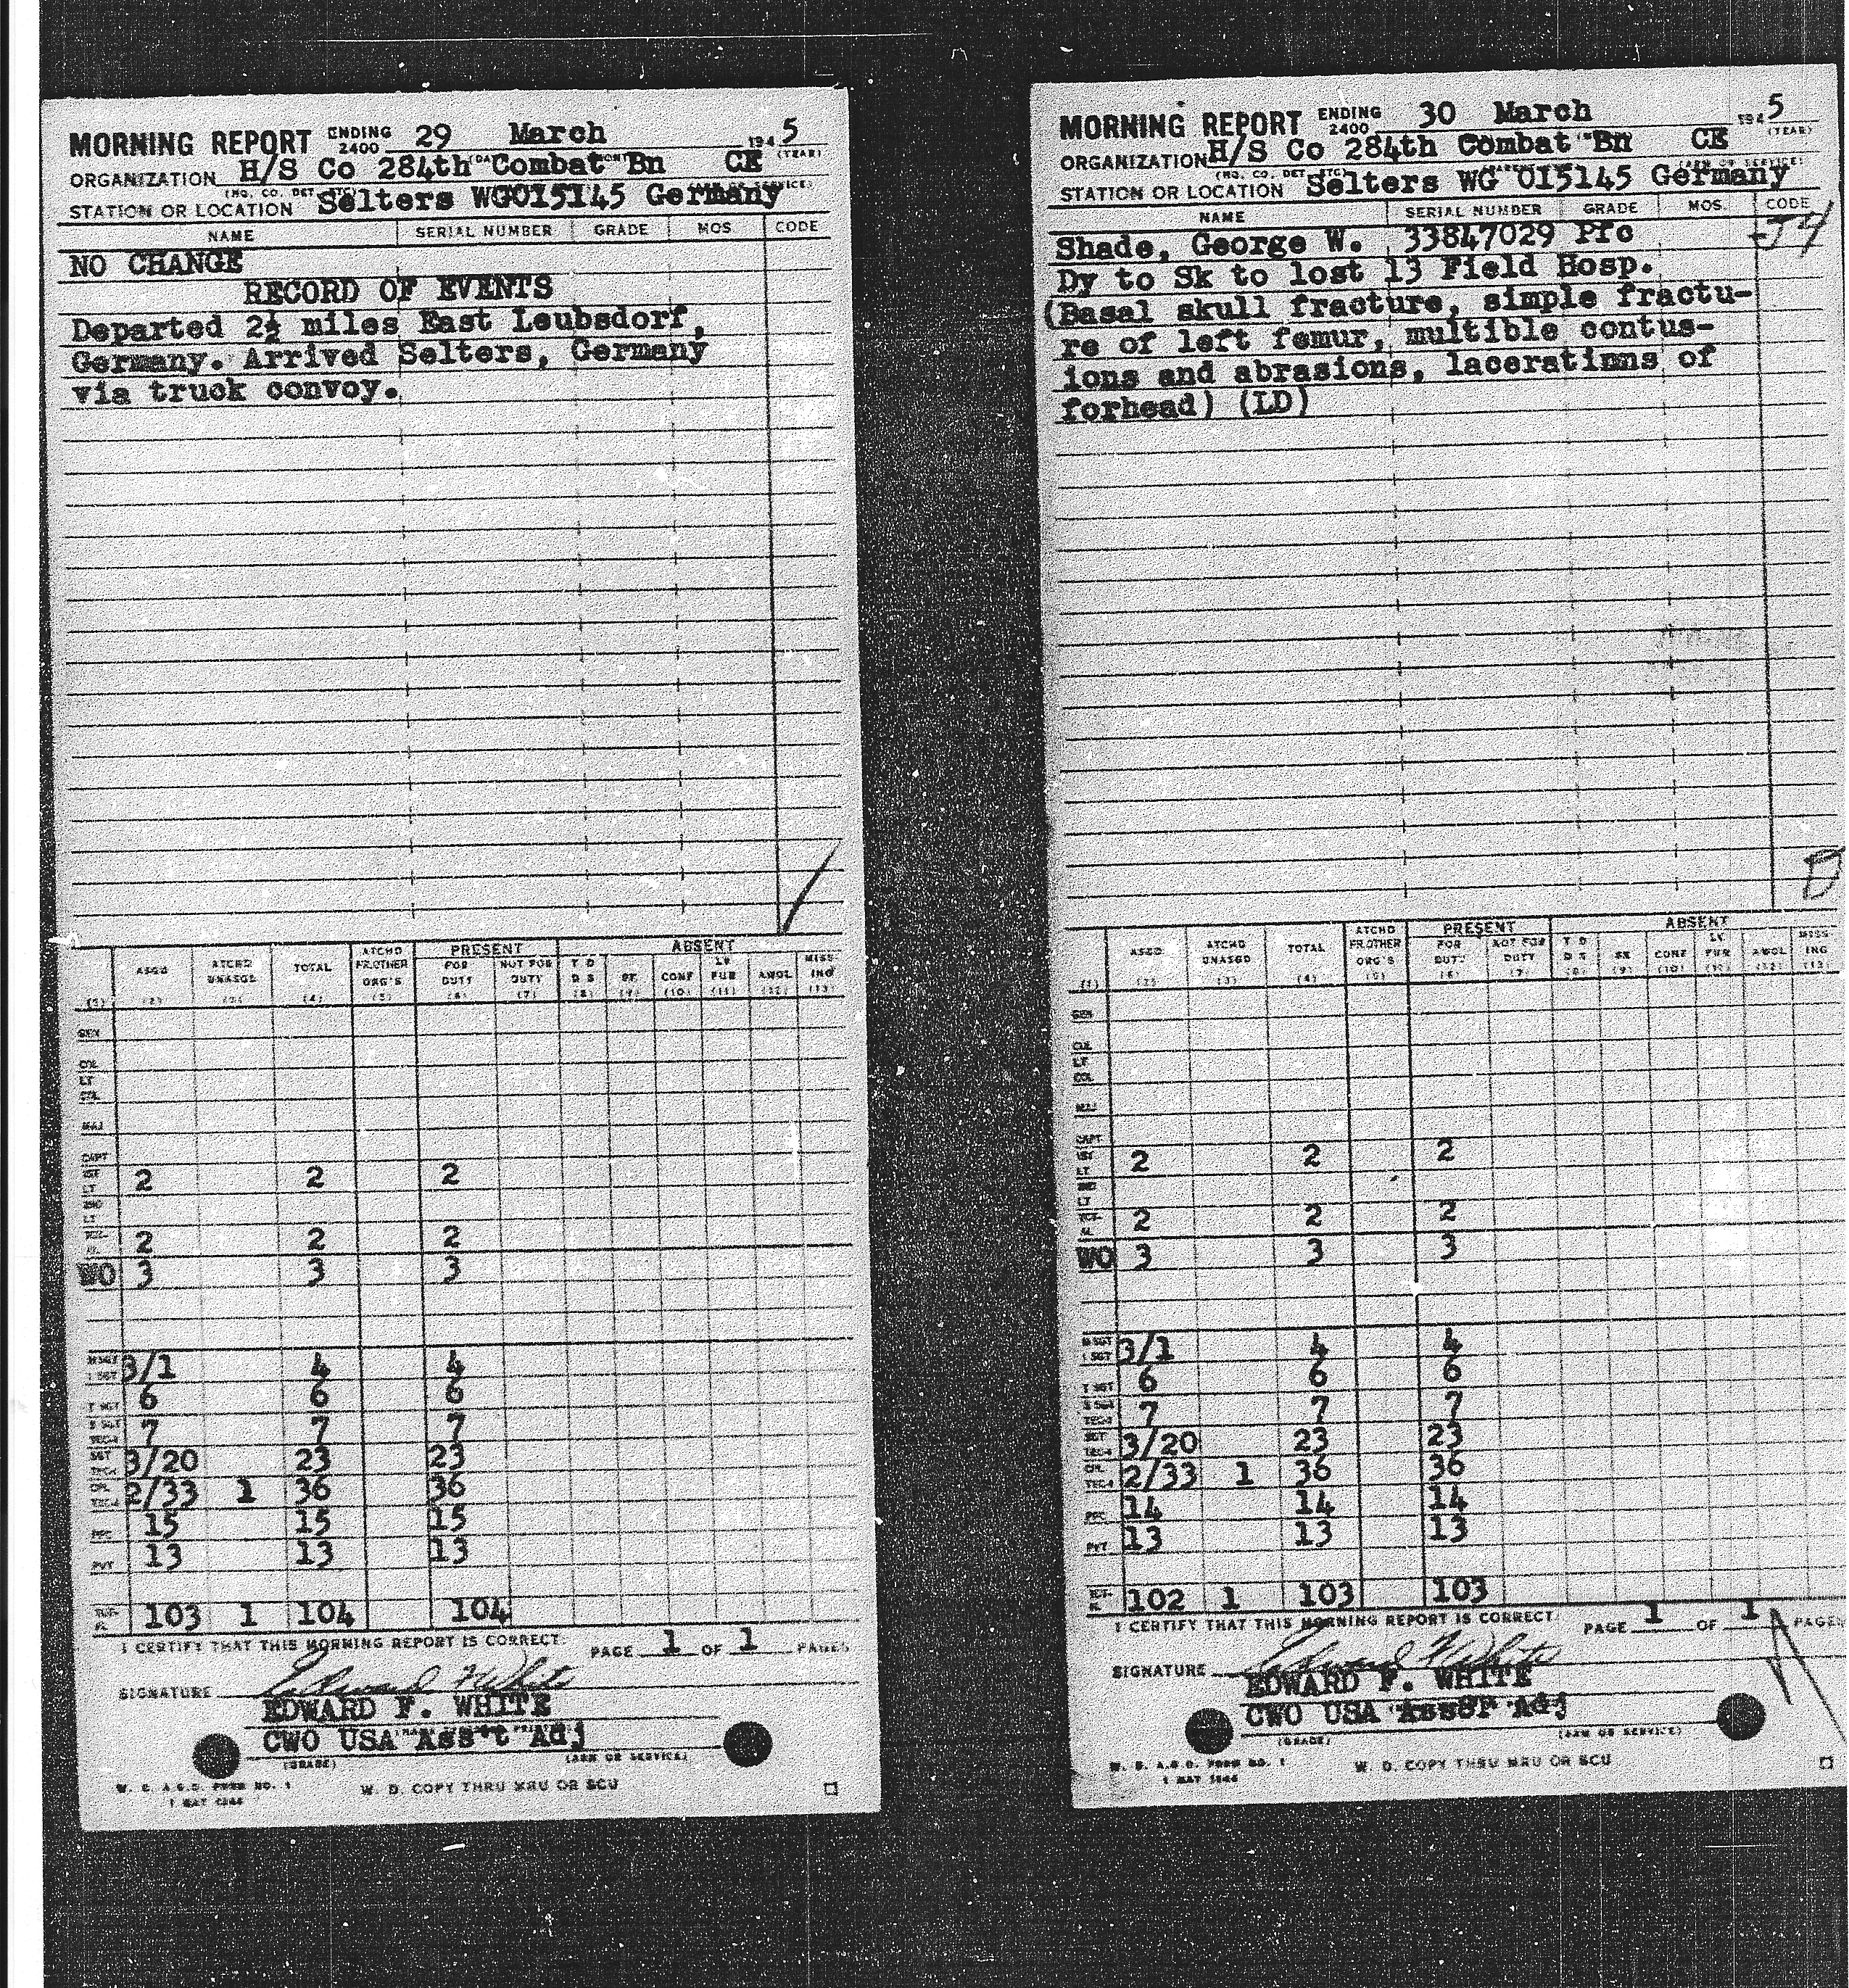 MORNING REPORT ENDING 2400 29 March 1945
(YEAR)
ORGANIZATION H/S Co 284th Combat Bn CE
STATION OR LOCATION Selters WG015145 Germany
NAME SERIAL NUMBER GRADE MOS CODE
NO CHANGE
RECORD OF EVENTS
Departed 2½ miles East Leubsdorf,
Germany. Arrived Selters, Germany
via truck convoy.
ASGD ATCHD UNASGD TOTAL ATCHD FR.OTHER ORG'S PRESENT FOR DUTY NOT FOR DUTY ABSENT T D D S SK CONF LV FUR AWOL MISSING
(1) (2) (3) (4) (5) (6) (7) (8) (9) (10) (11) (12) (13)
GEN
COL
LT COL
MAJ
CAPT
1ST LT 2 2 2
2ND LT
TOTAL 2 2 2
WO 3 3 3
M SGT 1 SGT 3/1 4 4
T SGT 6 6 6
S SGT TEC-3 7 7 7
SGT TEC-4 3/20 23 23
CPL 2/33 1 36 36
PFC 15 15 15
PVT 13 13 13
TOTAL 103 1 104 104
I CERTIFY THAT THIS MORNING REPORT IS CORRECT. PAGE 1 OF 1 PAGES
SIGNATURE Edward F White
EDWARD F. WHITE
CWO USA Ass't Adj
(GRADE) (ARM OR SERVICE)
W. D. A.G.O. FORM NO. 1
1 MAY 1944
W. D. COPY THRU MRU OR SCU
MORNING REPORT ENDING 2400 30 March 1945
(YEAR)
ORGANIZATION H/S Co 284th Combat Bn CE
STATION OR LOCATION Selters WG 015145 Germany
NAME SERIAL NUMBER GRADE MOS. CODE
Shade, George W. 33847029 Pfc
Dy to Sk to lost 13 Field Hosp.
(Basal skull fracture, simple fractu-
re of left femur, multible contus-
ions and abrasions, laceratinns of
forhead) (LD)
ASGD ATCHD UNASGD TOTAL ATCHD FR.OTHER ORG'S PRESENT FOR DUTY NOT FOR DUTY ABSENT T D D S SK CONF LV FUR AWOL MISSING
(1) (2) (3) (4) (5) (6) (7) (8) (9) (10) (11) (12) (13)
GEN
COL
LT COL
MAJ
CAPT
1ST LT 2 2 2
2ND LT
TOTAL 2 2 2
WO 3 3 3
M SGT 1 SGT 3/1 4 4
T SGT 6 6 6
S SGT TEC-3 7 7 7
SGT TEC-4 3/20 23 23
CPL 2/33 1 36 36
PFC 14 14 14
PVT 13 13 13
TOTAL 102 1 103 103
I CERTIFY THAT THIS MORNING REPORT IS CORRECT. PAGE 1 OF 1 PAGES
SIGNATURE Edward F White
EDWARD F. WHITE
CWO USA Adj
(GRADE) (ARM OR SERVICE)
W. D. A.G.O. FORM NO. 1
1 MAY 1944
W. D. COPY THRU MRU OR SCU